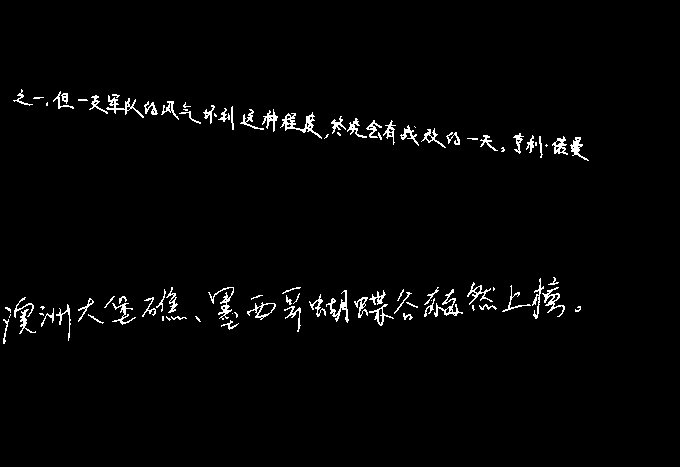 之一,但一支军队的风气坏到这种程度,终究会有战败的一天。亨利·诺曼
澳洲大堡礁、墨西哥蝴蝶谷赫然上榜。